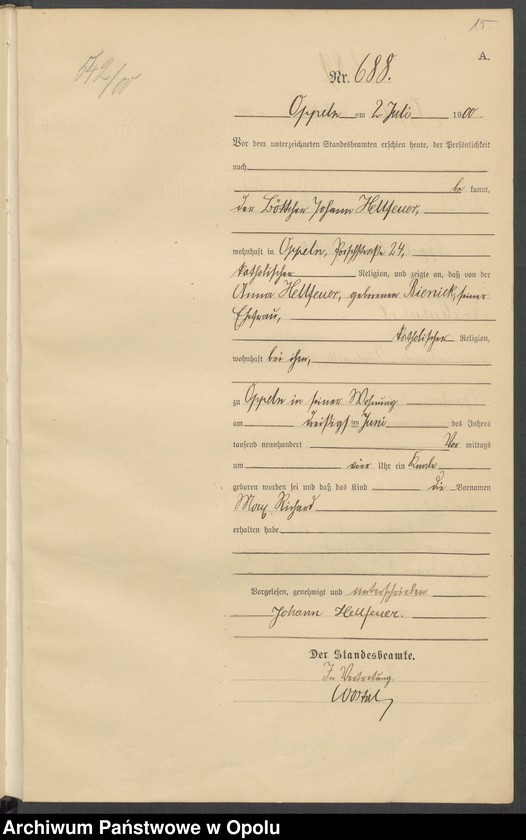 15
A.
542/00
Nr. 688.
Oppeln am 2. Juli 1900.
Vor dem unterzeichneten Standesbeamten erschien heute, der Persönlichkeit
nach
be kannt,
der Böttcher Johann Hellfeuer,
wohnhaft in Oppeln, 24,
katholischer Religion, und zeigte an, daß von der
Anna Hellfeuer, geborenen Bieniek, seiner
Ehefrau,
katholischer Religion,
wohnhaft bei ihm,
zu Oppeln in seiner Wohnung
am dreißigsten Juni des Jahres
tausend neunhundert Vor mittags
um vier Uhr ein Knabe
geboren worden sei und daß das Kind die Vornamen
Max Richard
erhalten habe.
Vorgelesen, genehmigt und unterschrieben
Johann Hellfeuer.
Der Standesbeamte.
In Vertretung.
Archiwum Państwowe w Opolu